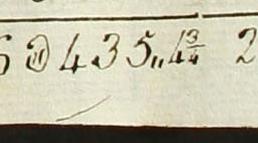 6 @ 435,,4¾ 2